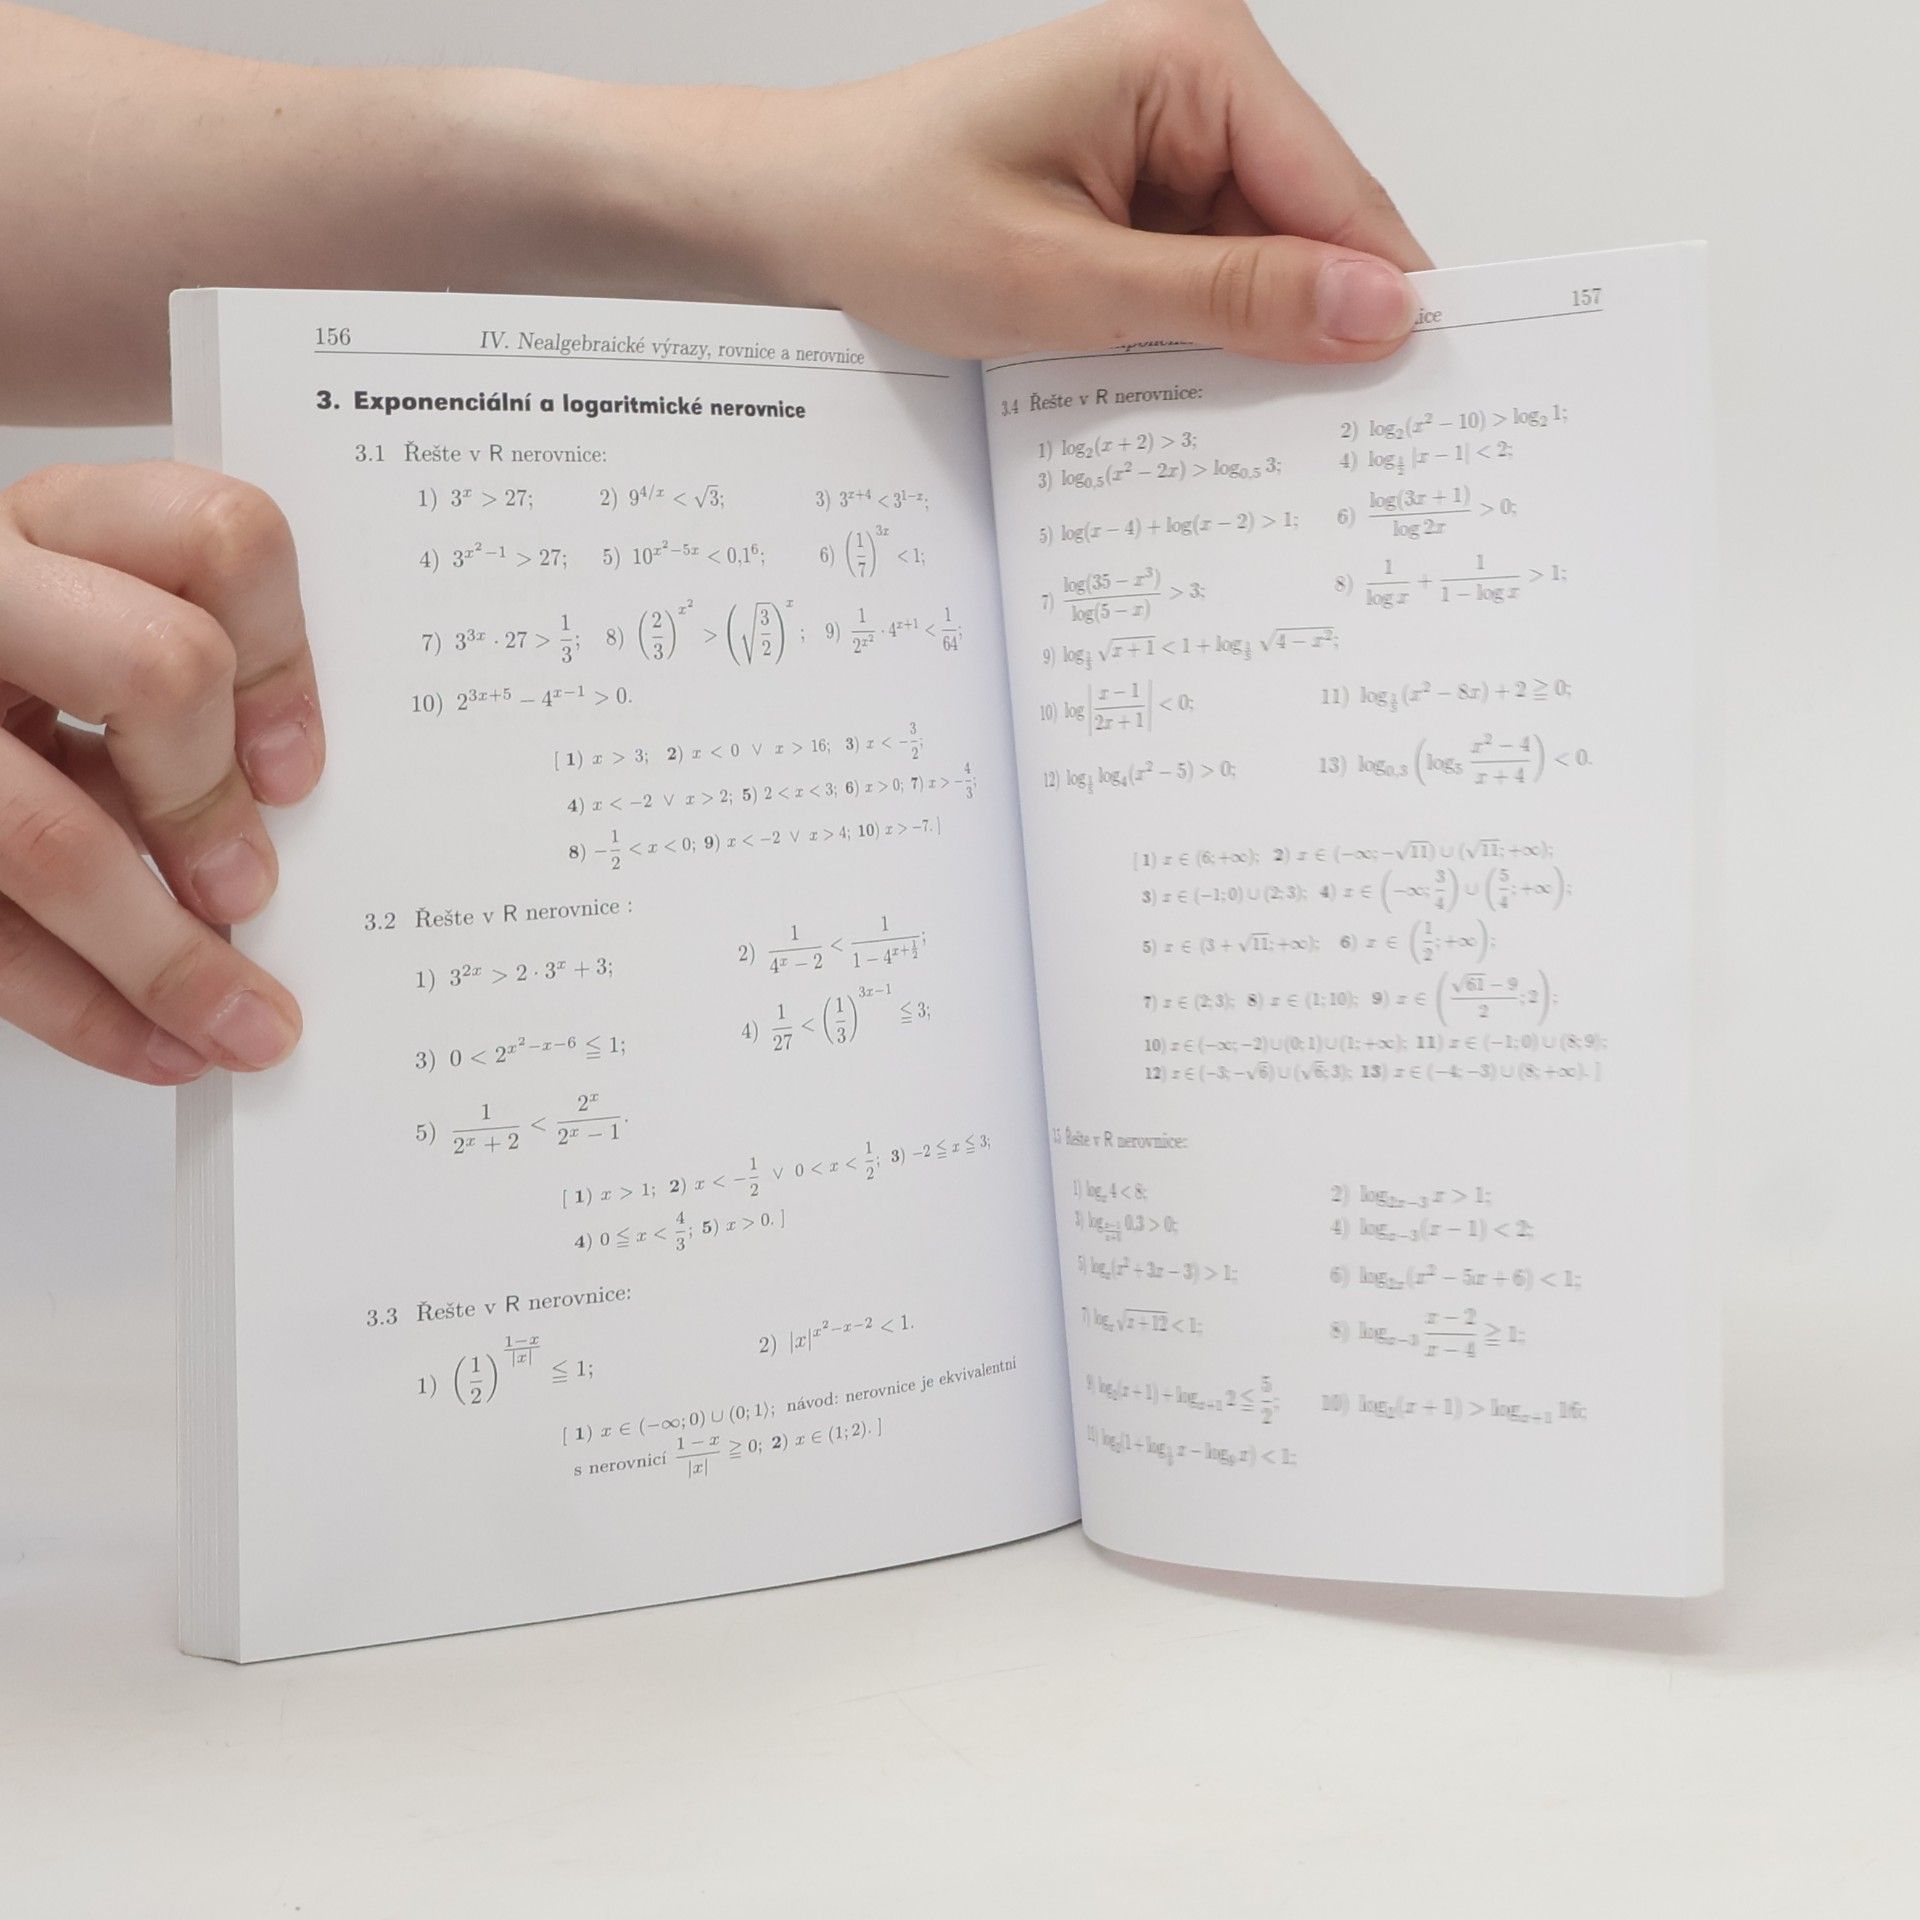 156 IV. Nealgebraické výrazy, rovnice a nerovnice
3. Exponenciální a logaritmické nerovnice
3.1 Řešte v R nerovnice:
1) 3^x > 27; 2) 9^{4/x} < √3; 3) 3^{x+4} < 3^{1−x};
4) 3^{x²−1} > 27; 5) 10^{x²−5x} < 0,1⁶; 6) (1/7)^{3x} < 1;
7) 3^{3x} · 27 > 1/3; 8) (2/3)^{x²} > (√(3/2))^x; 9) 1/2^{x²} · 4^{x+1} < 1/64;
10) 2^{3x+5} − 4^{x−1} > 0.
[ 1) x > 3; 2) x < 0 ∨ x > 16; 3) x < −3/2;
4) x < −2 ∨ x > 2; 5) 2 < x < 3; 6) x > 0; 7) x > −4/3;
8) −1/2 < x < 0; 9) x < −2 ∨ x > 4; 10) x > −7. ]
3.2 Řešte v R nerovnice :
1) 3^{2x} > 2 · 3^x + 3; 2) 1/(4^x − 2) < 1/(1 − 4^{x+1/2});
3) 0 < 2^{x²−x−6} ≦ 1; 4) 1/27 < (1/3)^{3x−1} ≦ 3;
5) 1/(2^x + 2) < 2^x/(2^x − 1).
[ 1) x > 1; 2) x < −1/2 ∨ 0 < x < 1/2; 3) −2 ≦ x ≦ 3;
4) 0 ≦ x < 4/3; 5) x > 0. ]
3.3 Řešte v R nerovnice:
1) (1/2)^{(1−x)/|x|} ≦ 1; 2) |x|^{x²−x−2} < 1.
[ 1) x ∈ (−∞; 0) ∪ (0; 1⟩; návod: nerovnice je ekvivalentní
s nerovnicí (1 − x)/|x| ≧ 0; 2) x ∈ (1; 2). ]
157
3.4 Řešte v R nerovnice:
1) log₂(x + 2) > 3; 2) log₂(x² − 10) > log₂ 1;
3) log₀,₅(x² − 2x) > log₀,₅ 3; 4) log |x − 1| < 2;
5) log(x − 4) + log(x − 2) > 1; 6) log(3x + 1)/log 2x > 0;
7) log(35 − x³)/log(5 − x) > 3; 8) 1/log x + 1/(1 − log x) > 1;
9) log √(x + 1) < 1 + log √(4 − x²);
10) log |(x − 1)/(2x + 1)| < 0; 11) log (x² − 8x) + 2 ≧ 0;
12) log log₄(x² − 5) > 0; 13) log₀,₃ (log₅ (x² − 4)/(x + 4)) < 0.
[ 1) x ∈ (6; +∞); 2) x ∈ (−∞; −√11) ∪ (√11; +∞);
3) x ∈ (−1; 0) ∪ (2; 3); 4) x ∈ (−∞; 3/4) ∪ (5/4; +∞);
5) x ∈ (3 + √11; +∞); 6) x ∈ (1/2; +∞);
7) x ∈ (2; 3); 8) x ∈ (1; 10); 9) x ∈ ((√61 − 9)/2; 2);
10) x ∈ (−∞; −2) ∪ (0; 1) ∪ (1; +∞); 11) x ∈ (−1; 0) ∪ (8; 9);
12) x ∈ (−3; −√6) ∪ (√6; 3); 13) x ∈ (−4; −3) ∪ (8; +∞). ]
Řešte v R nerovnice:
1) logₓ 4 < 8; 2) log_{2x−3} x > 1;
3) log 0,3 > 0; 4) log_{x−3}(x − 1) < 2;
5) logₓ(x² + 3x − 3) > 1; 6) log_{2x}(x² − 5x + 6) < 1;
7) logₓ √(x + 12) < 1; 8) log_{x−3} (x − 2)/(x − 4) ≧ 1;
9) log₂(x + 1) + log_{x+1} 2 ≦ 5/2; 10) log₂(x + 1) > log_{x+1} 16;